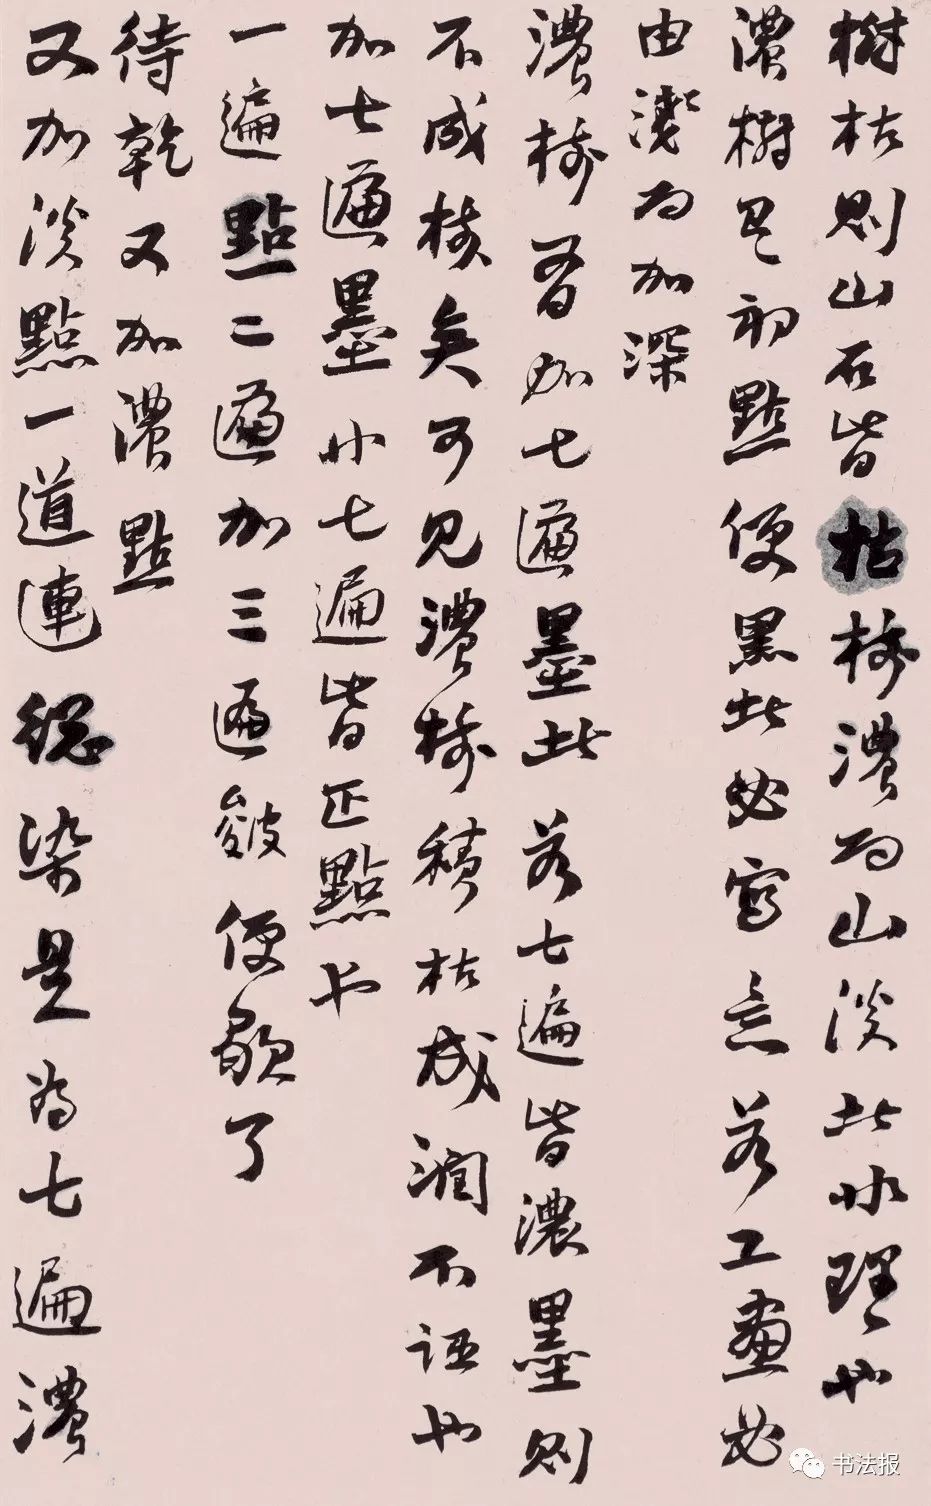 樹枯則山石皆枯樹濃而山淡此非理也
濃樹是初點便黑此必寫意若工畫必
由淺而加深
濃樹有加七遍墨此若七遍皆濃墨則
不成樹矣可見濃樹積枯成潤不誣也
加七遍墨非七遍皆正點也
一遍點二遍加三遍皴便歇了
待乾又加濃點
又加淡點一道連總染是為七遍濃
书法报